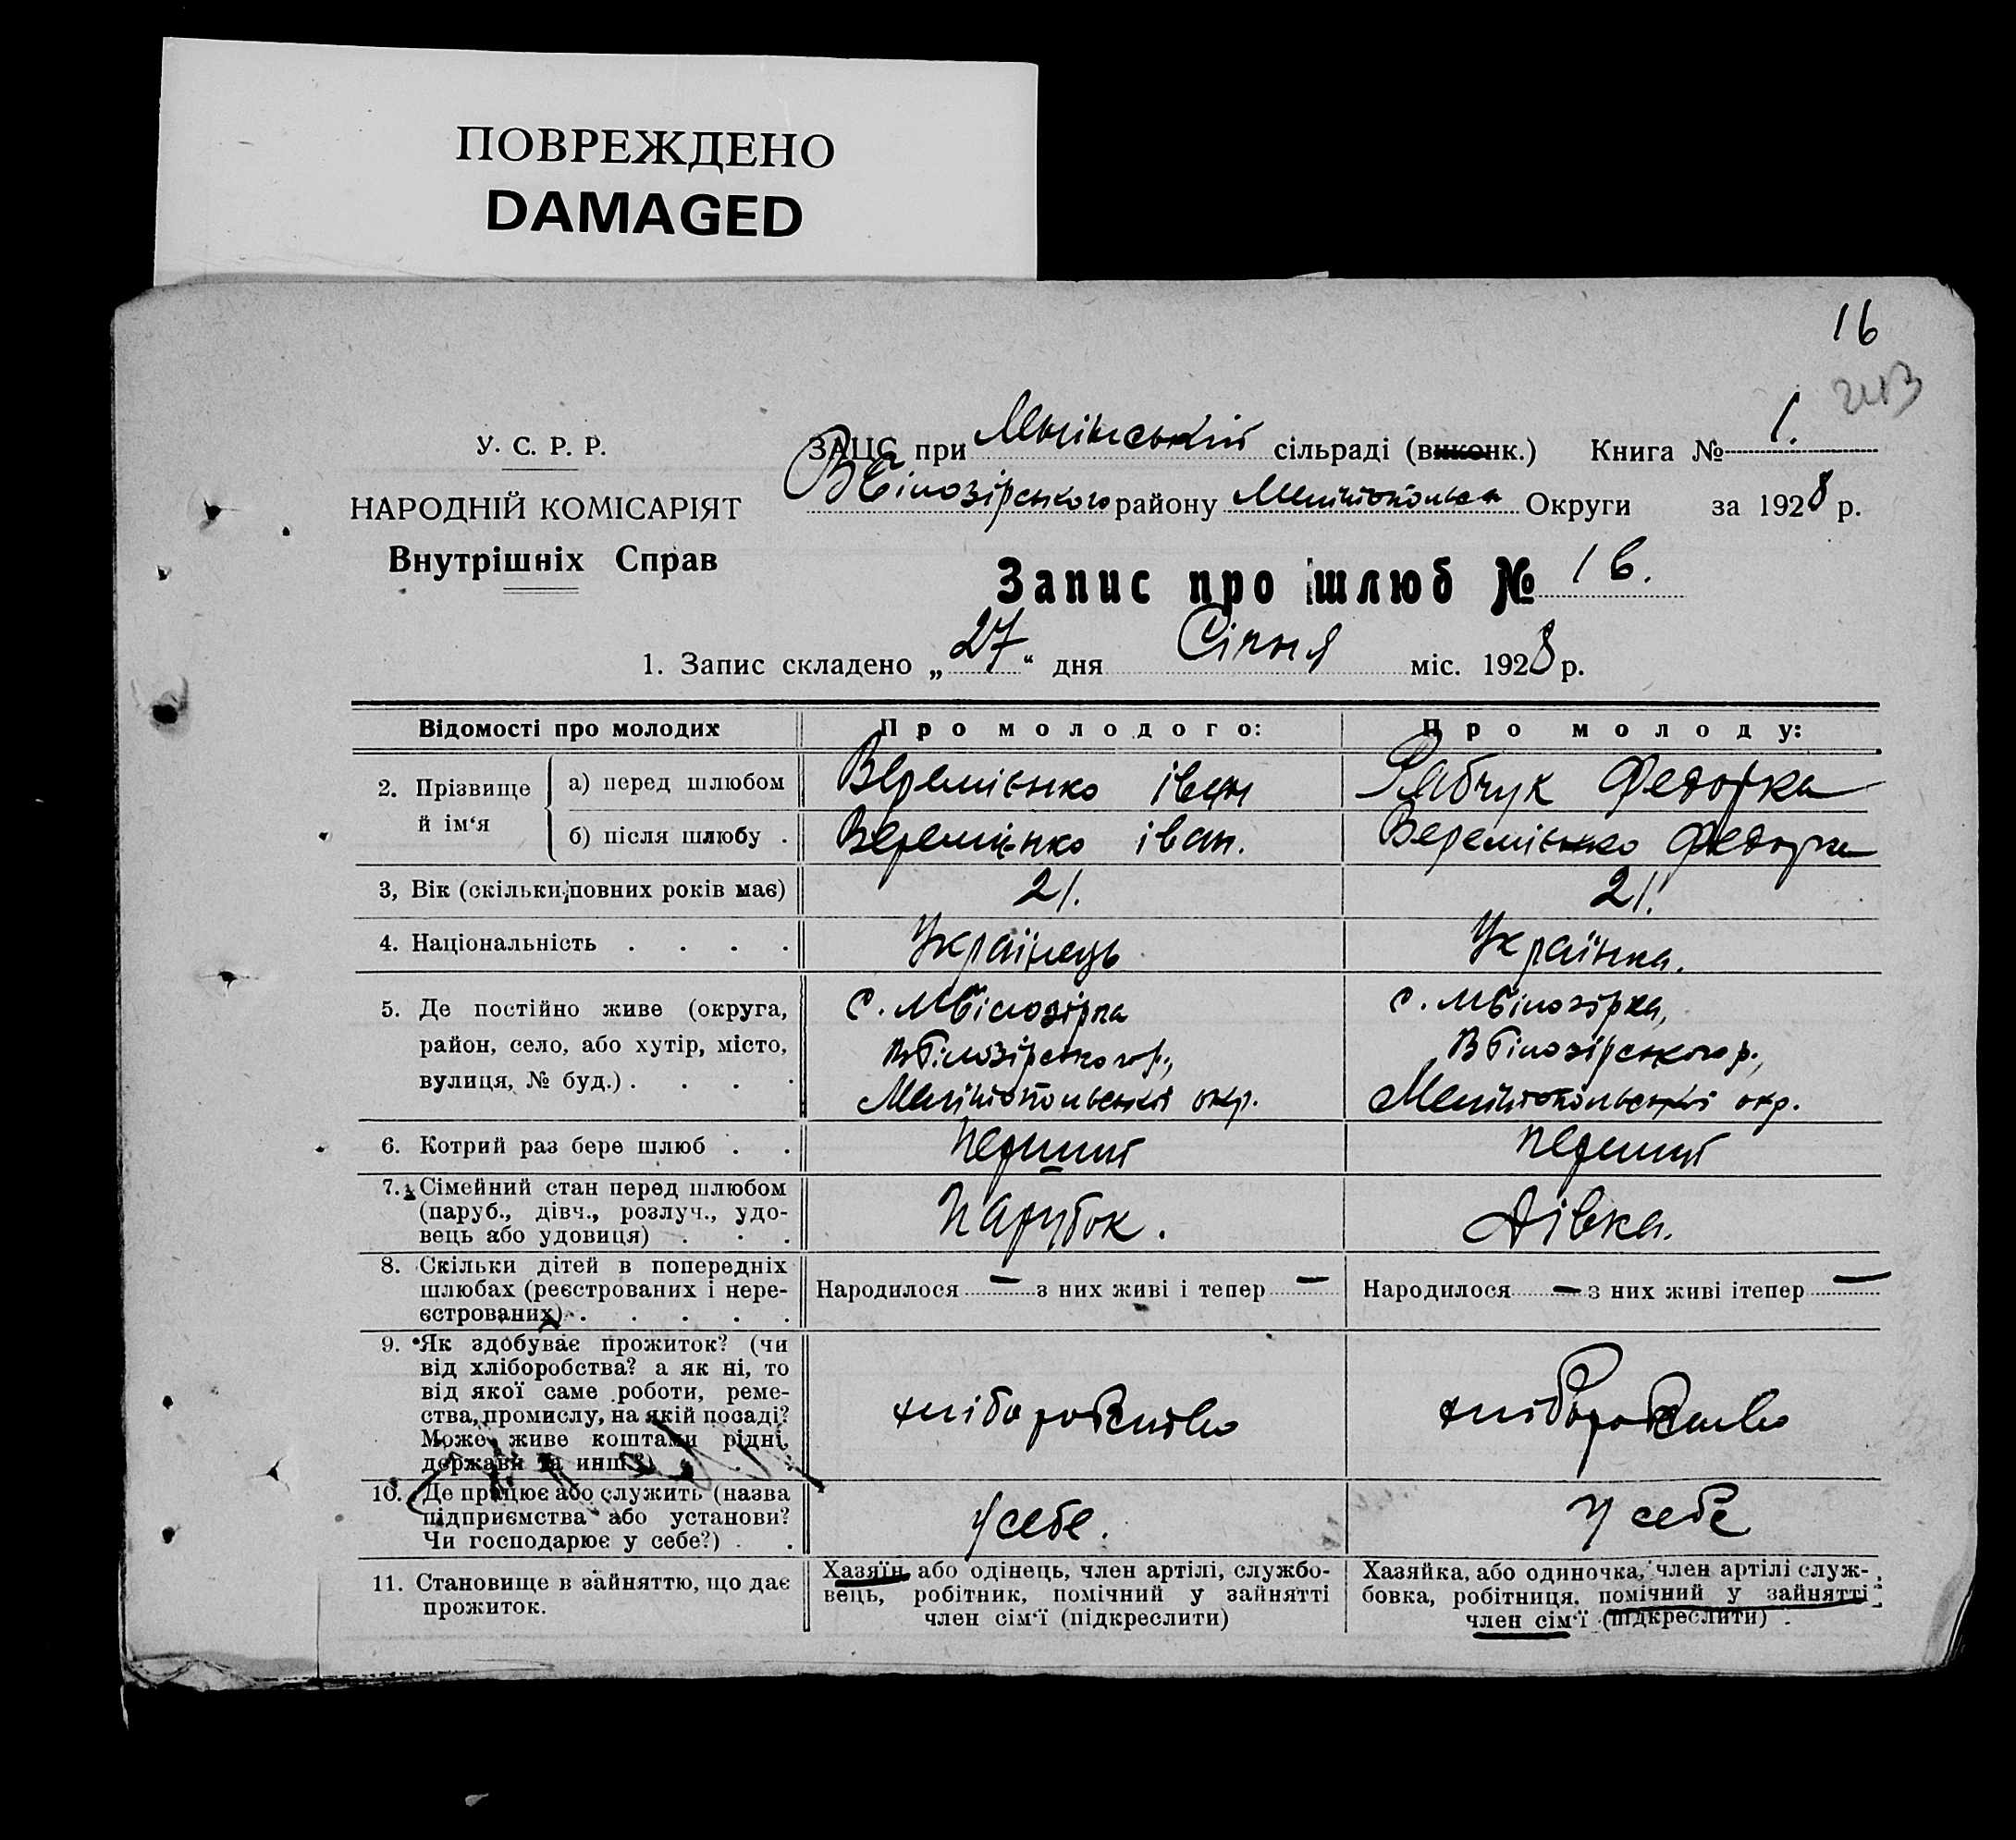 ПОВРЕЖДЕНО
DAMAGED
16
У. С. Р. Р.
НАРОДНІЙ КОМІСАРІЯТ
Внутрішніх Справ
ЗАЦС при сільраді (виконк.) Книга № 1.
ВБілозірського району Мелітопольськ Округи за 1928 р.
Запис про шлюб № 16.
1. Запис складено „27“ дня Січня міс. 1928 р.
Відомості про молодих Про молодого: Про молоду:
2. Прізвище й ім‘я
а) перед шлюбом Веремієнко іван Рябчук Федорка
б) після шлюбу . Веремієнко іван. Веремієнко Федорка
3, Вік (скільки повних років має) 21. 21.
4. Національність . . . . Українець Українка.
5. Де постійно живе (округа, район, село, або хутір, місто, вулиця, № буд.) . . . .
с. МБілозірка
ВБілозірського р.,
Мелітопольської окр.
с. МБілозірка,
ВБілозірського р.,
Мелітопольської окр.
6. Котрий раз бере шлюб . . перший перший
7. Сімейний стан перед шлюбом
(паруб., дівч., розлуч., удо-
вець або удовиця) . . . Парубок. Дівка.
8. Скільки дітей в попередніх
шлюбах (реєстрованих і нере-
єстрованих) . . . . .
Народилося — з них живі і тепер — Народилося — з них живі ітепер —
9. Як здобуває прожиток? (чи
від хліборобства? а як ні, то
від якої саме роботи, реме-
ства, промислу, на якій посаді?
Може живе коштами рідні,
держави та инш.?)
хліборобство хліборобство
10. Де працює або служить (назва
підприємства або установи?
Чи господарює у себе?) . .
у себе. у себе
11. Становище в зайняттю, що дає
прожиток.
Хазяїн, або одінець, член артілі, службо-
вець, робітник, помічний у зайнятті
член сім‘ї (підкреслити)
Хазяйка, або одиночка, член артілі служ-
бовка, робітниця, помічний у зайнятті
член сім‘ї (підкреслити)